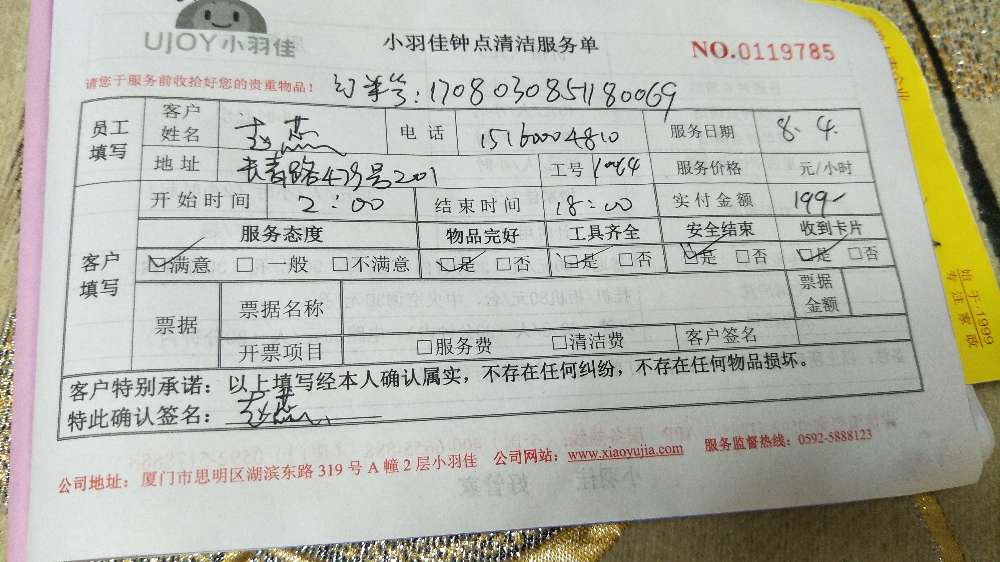 UJOY小羽佳 小羽佳钟点清洁服务单 NO.0119785
请您于服务前收拾好您的贵重物品！ 订单号:1708030851180069
员工填写 客户姓名 赵燕 电话 15160004810 服务日期 8.4.
地址 长青路479号201 工号 1064 服务价格 元/小时
开始时间 2:00 结束时间 18:00 实付金额 199-
客户填写 服务态度 物品完好 工具齐全 安全结束 收到卡片
☑满意 □一般 □不满意 ☑是 □否 ☑是 □否 ☑是 □否 ☑是 □否
票据 票据名称 票据金额
开票项目 □服务费 □清洁费 客户签名
客户特别承诺：以上填写经本人确认属实，不存在任何纠纷，不存在任何物品损坏。
特此确认签名：赵燕
公司地址：厦门市思明区湖滨东路 319 号 A 幢 2 层小羽佳 公司网站：www.xiaoyujia.com 服务监督热线：0592-5888123
始于1999
专注家政